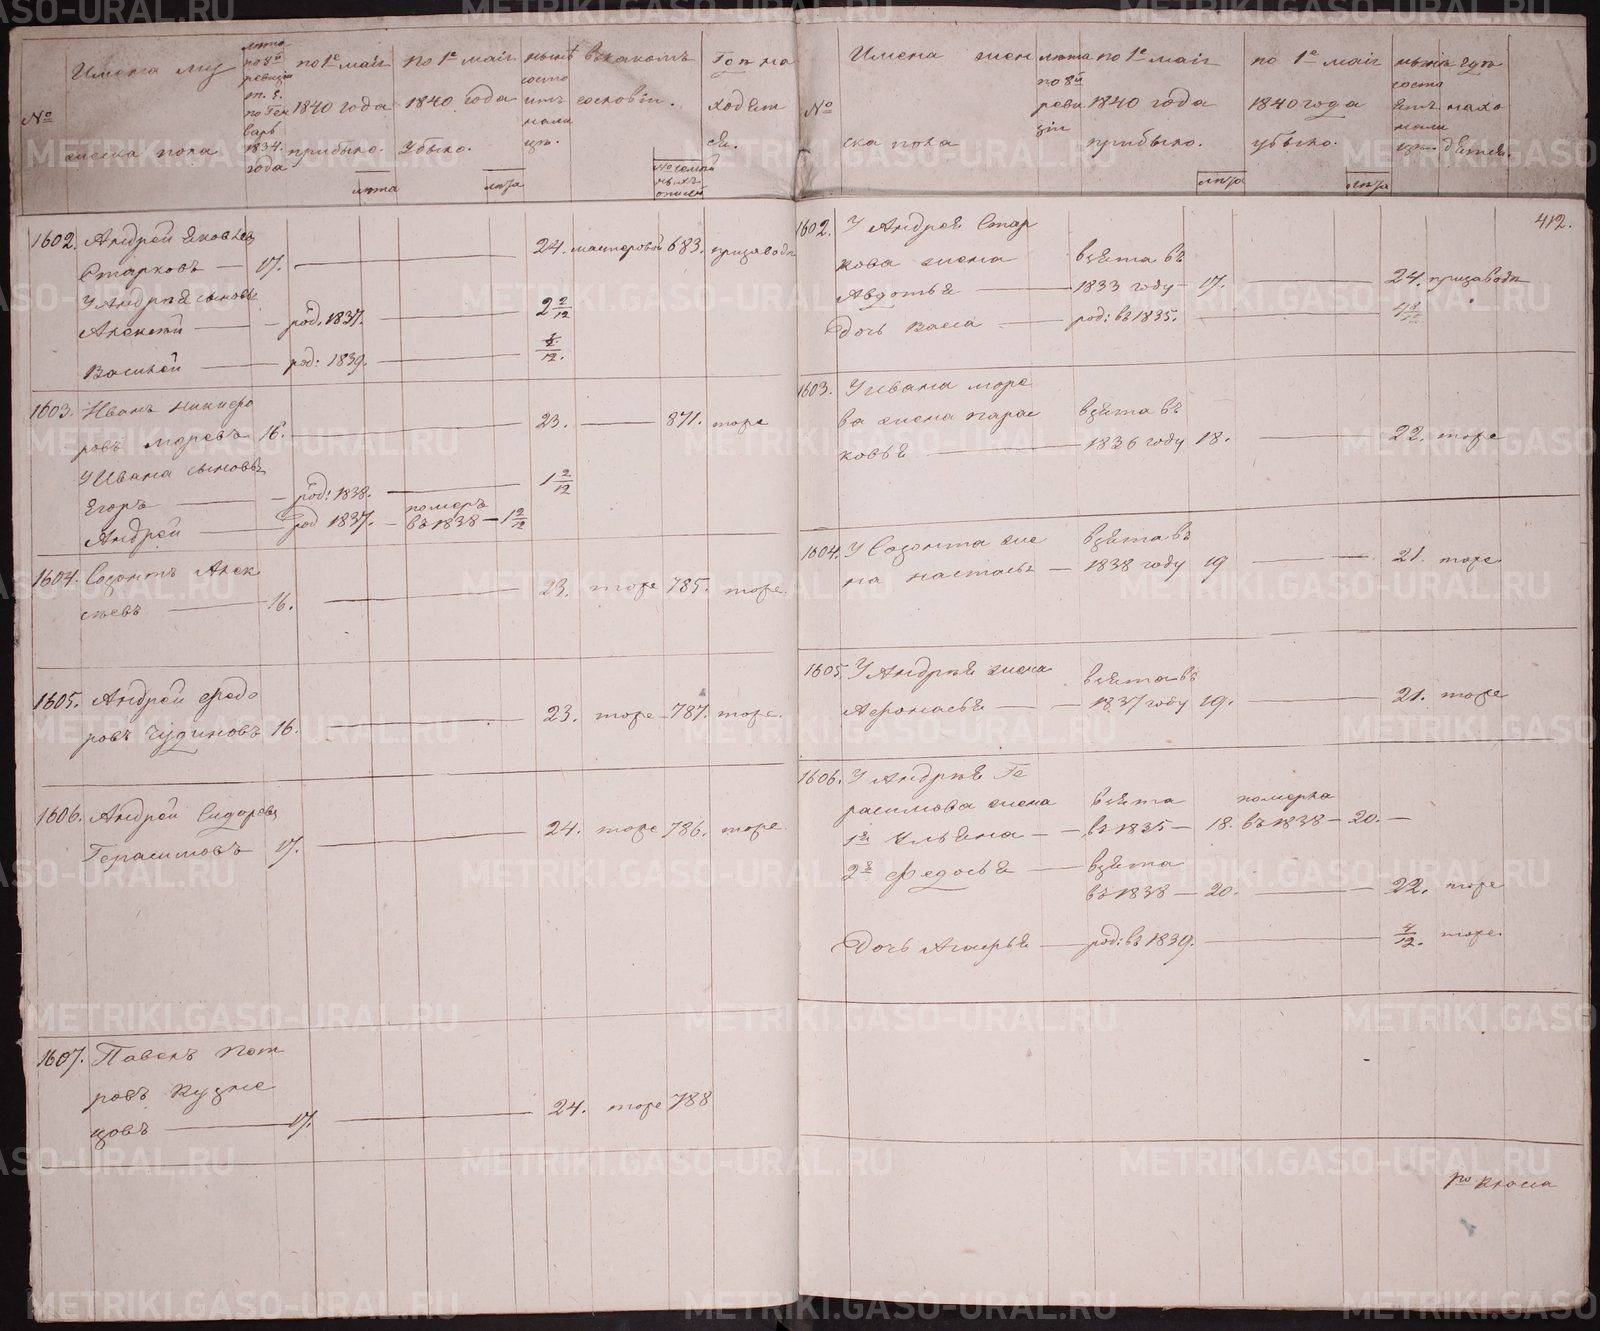 №
Имена му
жеска пола
лѣта
по 8й
ревизіи
т. е.
по Ген
варь
1834.
года
по 1е маія
1840 года
прибыло.
лѣта
по 1е маія
1840 года
убыло.
лѣта
нынѣ
состо
итъ
нали
цо.
въ какомъ
сословіи.
№ семей
ныхъ
описей
Гдѣ на
ходит
ся.
1602. Андрей Яковлев
Старковъ — 17. — 24. мастеровой 683. при заводѣ
У Андрея сыновья
Алексѣй — род. 1837. — 2 2/12
Василей — род: 1839. — 5/12.
1603. Иванъ Никифо
ровъ Моревъ 16. — 23. — 871. тоже
У Ивана сыновья
Егоръ — род: 1838. — 1 2/12
Андрей — род 1837. — померъ
въ 1838 — 1 2/12
1604. Созонтъ Алек
сѣевъ — 16. — 23. тоже 785. тоже.
1605. Андрей Федо
ровъ Чудиновъ 16. — 23. тоже 787. тоже.
1606. Андрей Сидоровъ
Герасимовъ 17. — 24. тоже 786. тоже.
1607. Павелъ Пет
ровъ Кузне
цовъ — 17. — 24. тоже 788
№
Имена жен
ска пола
лѣта
по 8й
реви
зіи
по 1е маія
1840 года
прибыло.
лѣта
по 1е маія
1840 года
убыло.
лѣта
нынѣ
состо
итъ
нали
цо.
гдѣ
нахо
дится.
412.
1602. У Андрея Стар
кова жена взята въ
Авдотья — 1833 году — 17. — 24. при заводѣ
Дочь Васса — род: въ 1835. — 4 4/12
1603. У Ивана Море
ва жена Парас взята въ
ковья — 1836 году 18. — 22. тоже
1604. У Созонта же взята въ
на Настасья — 1838 году 19 — 21. тоже
1605. У Андрея жена взята въ
Афонасья — 1837 году 19. — 21. тоже
1606. У Андрея Ге
расимова жена взята померла
1я Ульяна — въ 1835 — 18. въ 1838 — 20. —
2я Федосья — взята
въ 1838 — 20. — 22. тоже
Дочь Агафья — род: въ 1839. — 4/12. тоже.
METRIKI.GASO-URAL.RU